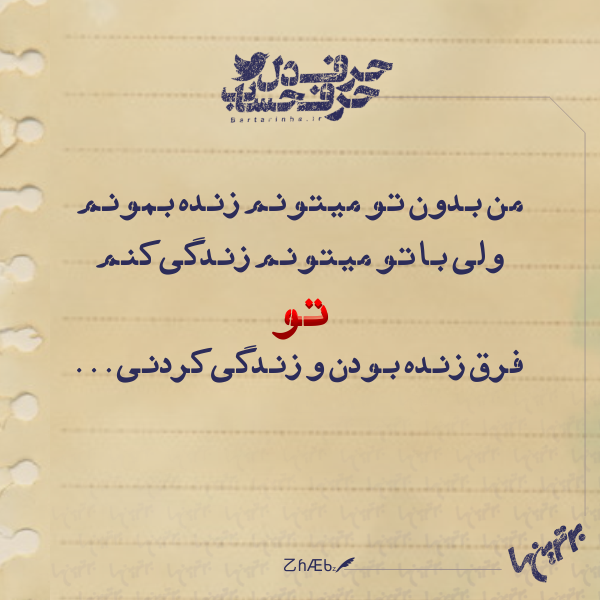 حرف دل
حرف حساب
Bartarinha.ir
من بدون تو میتونم زنده بمونم
ولی با تو میتونم زندگی کنم
تو
فرق زنده بودن و زندگی کردنی...
ZhÆbz
برترینها